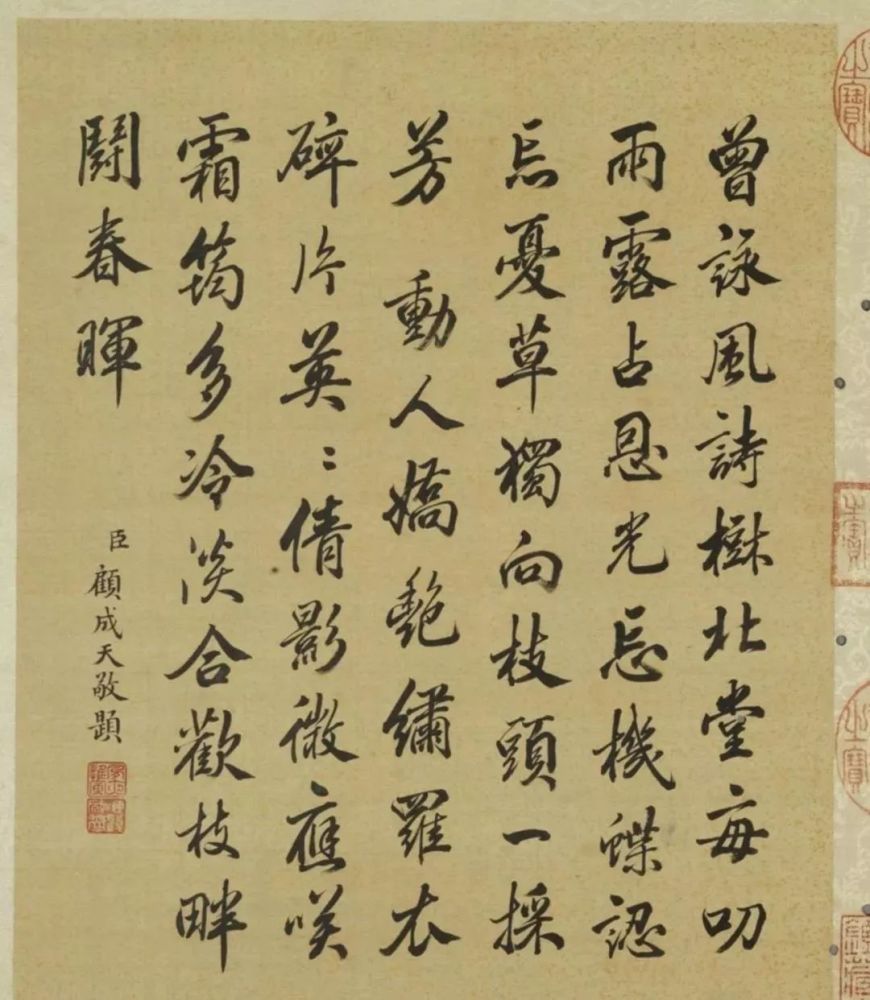 曾詠風詩樹北堂每叨
雨露占恩光忘機蝶認
忘憂草獨向枝頭一採
芳 動人嬌艷繡羅衣
碎片英〻倩影微應咲
霜筠多冷淡合歡枝畔
鬪春暉
臣顧成天敬題
之寶
之寶
之寶